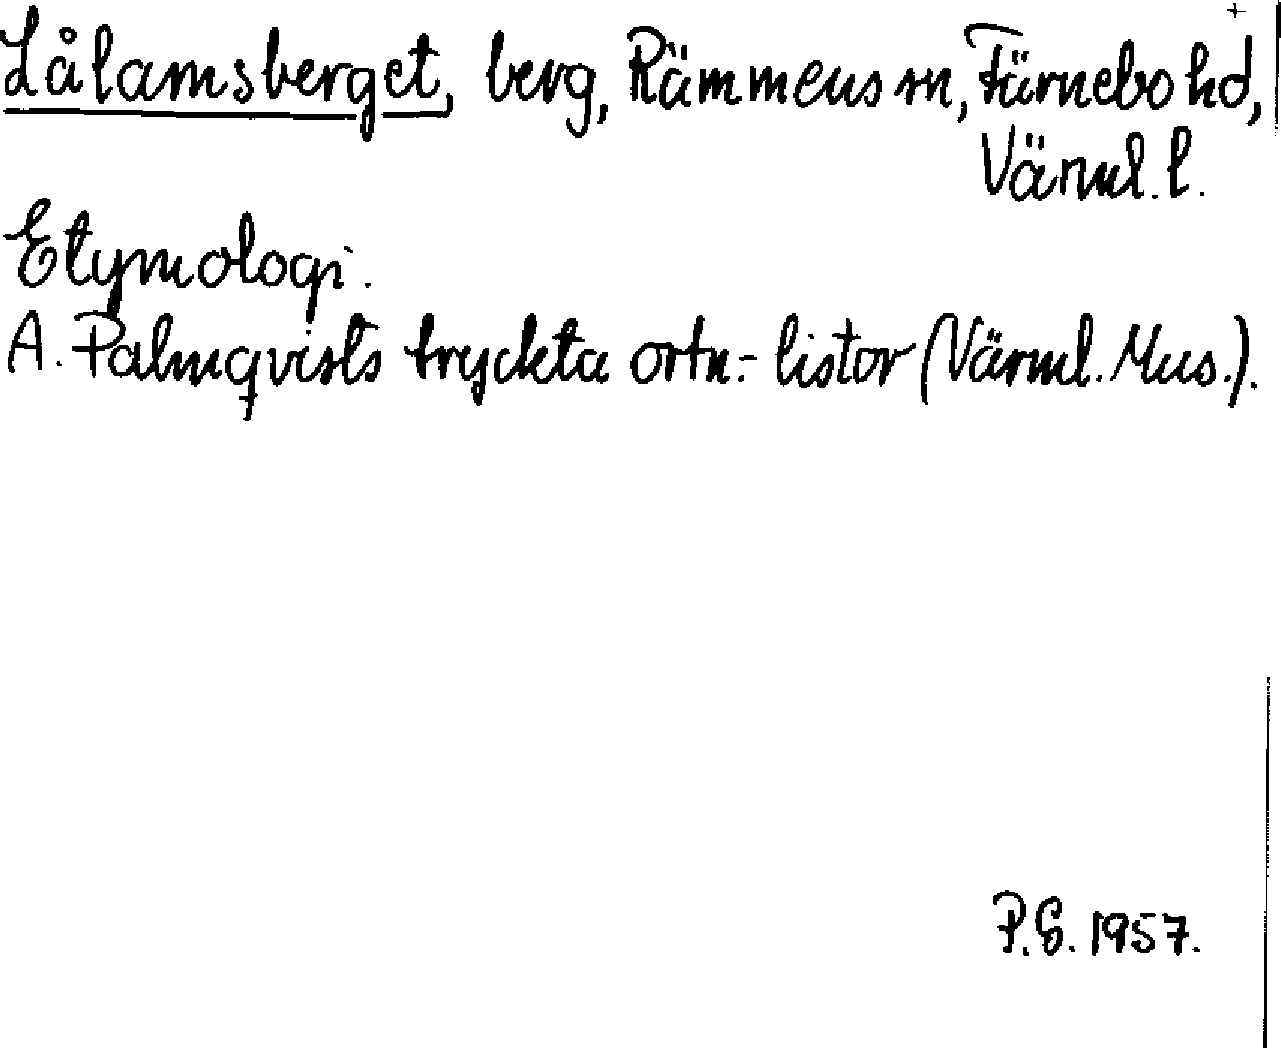 Lålamsberget, berg, Rämmens sn, Färnebo hd,
Värml. l.
Etymologi.
A. Palmqvists tryckta ortn.- listor (Värml. Mus.).
P. G. 1957.